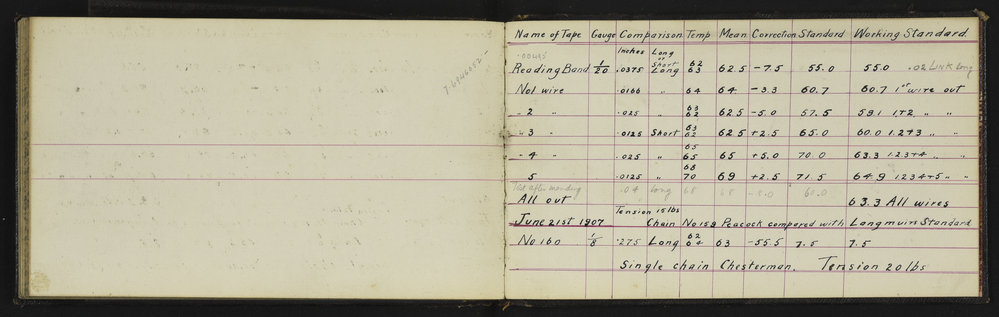 7.6946052
Name of Tape Gauge Comparison Temp Mean Correction Standard Working Standard
.00495 Inches Long or
Reading Band 1/20 .0375 Short Long 62 63 62.5 -7.5 55.0 55.0 .02 Link Long
No1 wire .0166 " 64 64 -3.3 60.7 60.7 1st wire out
" 2 " .025 " 63 62 62.5 -5.0 57.5 59.1 1+2 " "
" 3 " .0125 Short 63 62 62.5 +2.5 65.0 60.0 1.2+3 " "
" 4 " .025 " 65 65 65 +5.0 70.0 63.3 1.2.3+4 " "
5 .0125 " 68 70 69 +2.5 71.5 64.9 1234+5 " "
Test after mending .04 Long 68 68 -8.0 60.0
All out 63.3 All wires
Tension 15 lbs
June 21st 1907 Chain No 158 Peacock compared with Langmuin Standard
No 160 1/8 .275 Long 62 64 63 -55.5 7.5 7.5
Single chain Chesterman. Tension 20 lbs